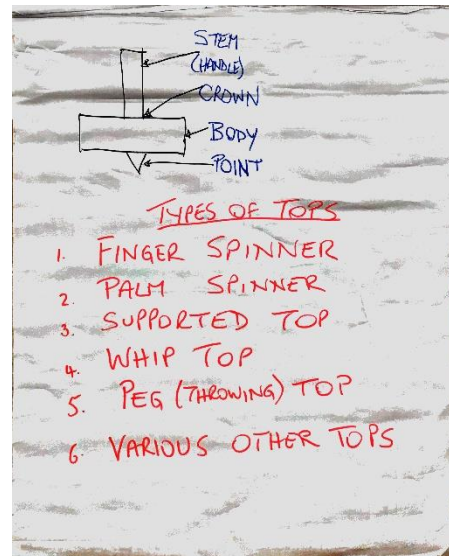 STEM
(HANDLE)
CROWN
BODY
POINT
TYPES OF TOPS
1. FINGER SPINNER
2. PALM SPINNER
3. SUPPORTED TOP
4. WHIP TOP
5. PEG (THROWING) TOP
6. VARIOUS OTHER TOPS